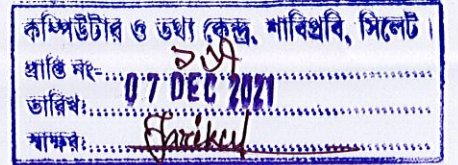 কম্পিউটার ও তথ্য কেন্দ্র, শাবিপ্রবি, সিলেট।
প্রাপ্তি নং-
তারিখঃ 07 DEC 2021
স্বাক্ষরঃ